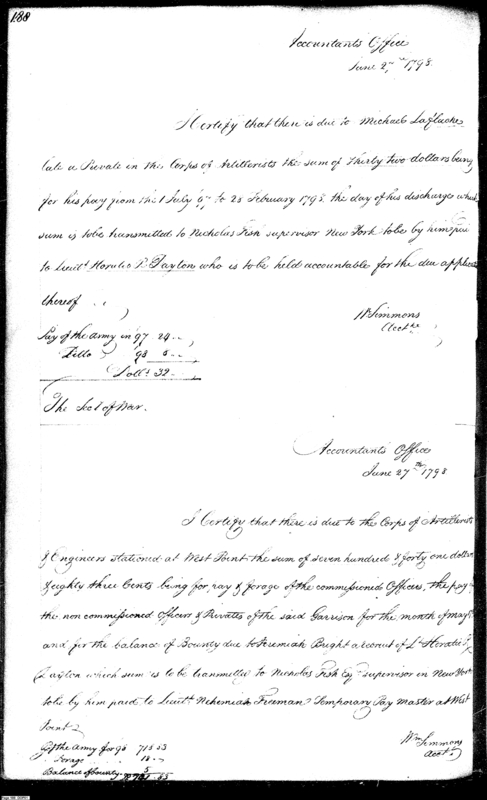 188
Accountants Office
June 27th 1798.
I Certify that there is due to Michael
late a Private in the Corps of Artillerists the sum of Thirty two dollars being
for his pay from the 1 July 97 to 28 February 1798. the day of his discharge which
sum is to be transmitted to Nicholas Fish supervisor New York to be by him paid
to Lieut. Horatio R. Dayton who is to be held accountable for the due application
thereof
Wm Simmons
Acct.
Pay of the Army in 97 24
Ditto 98 8
Dolls. 32
The Sec't of War.
Accountants Office
June 27th 1798
I Certify that there is due to the Corps of Artillerists
& Engineers stationed at West Point the sum of seven hundred & forty one dollars
& eighty three Cents being for pay & forage of the commissioned Officers, the pay
the non commissioned Officers & Privates of the said Garrison for the month of may
and for the balance of Bounty due to Jeremiah Bught a recruit of Lt Horatio
Dayton which sum is to be transmitted to Nicholas Fish Esqr supervisor in New York
to be by him paid to Lieut. Nehemiah Freeman Temporary Pay Master at West
Point
of the Army for 98
Forage 18
Balance of Bounty. 5
Wm Simmons
Acct.